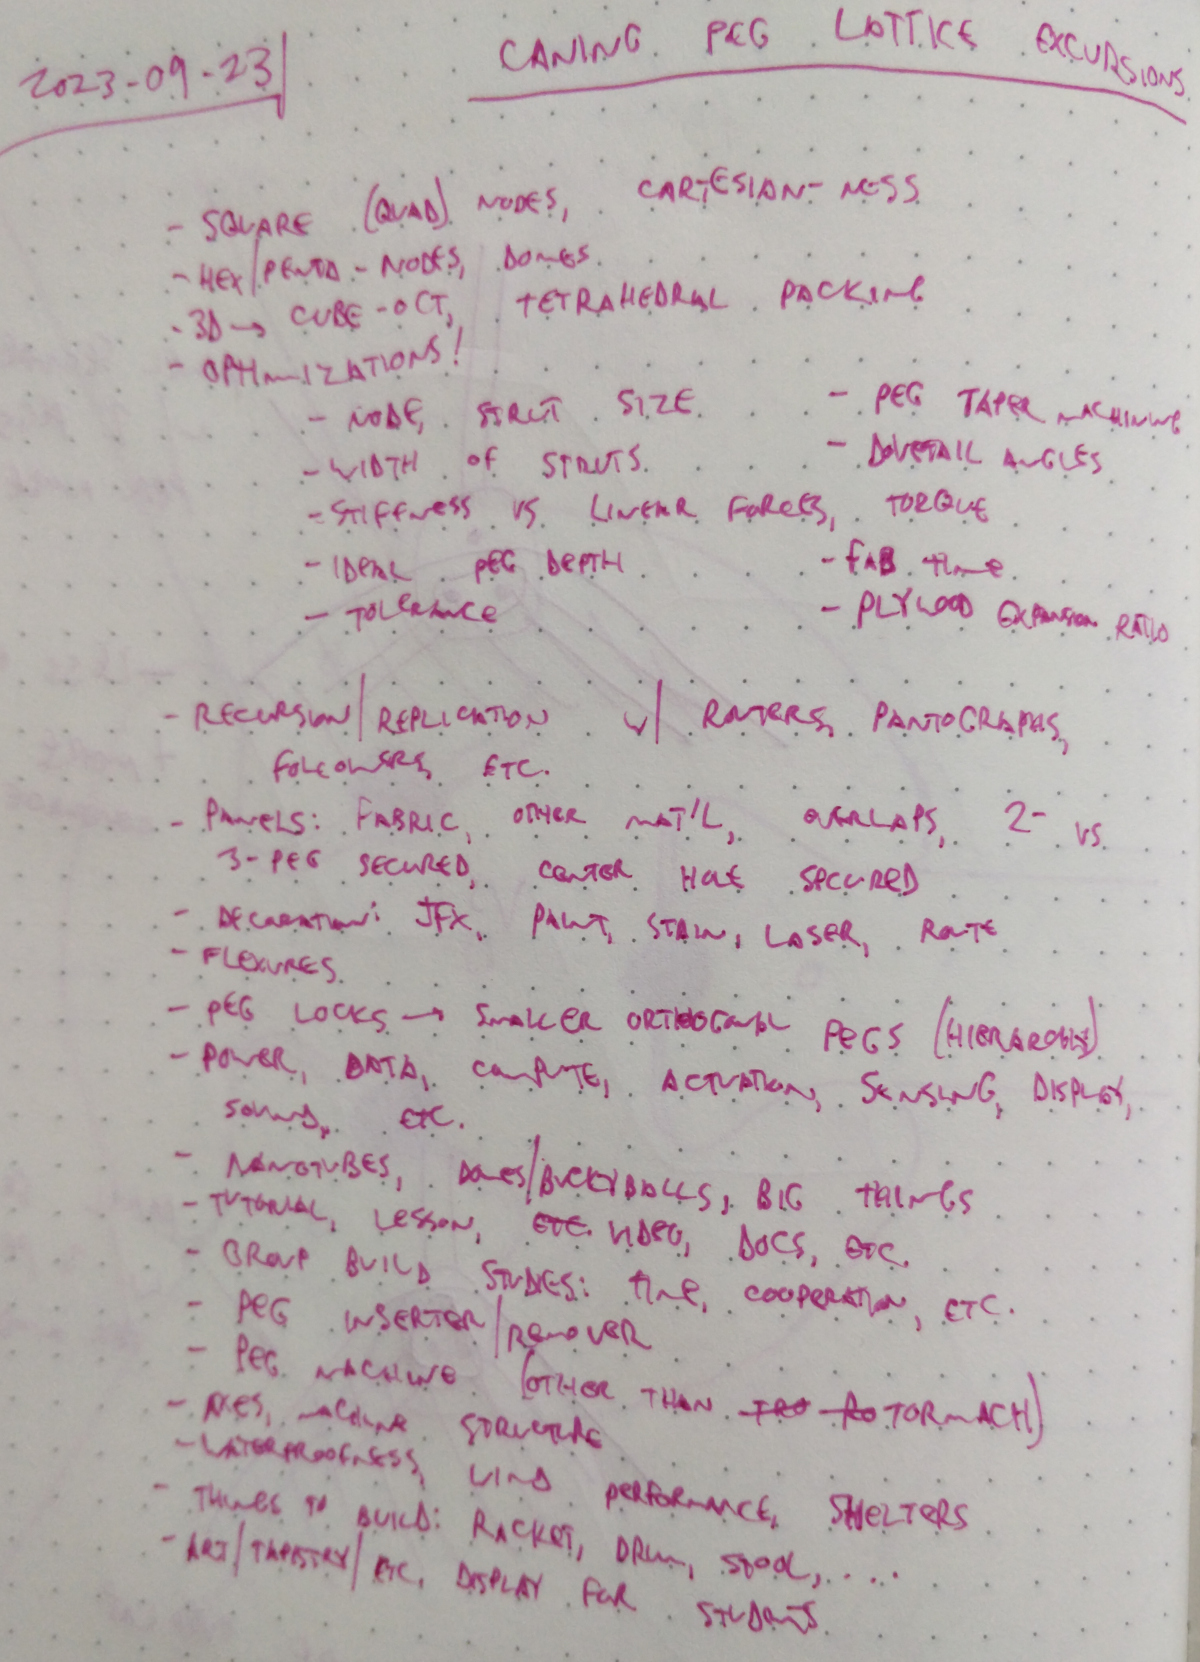 2023-09-23
CANING PEG LATTICE EXCURSIONS
- SQUARE (QUAD) NODES, CARTESIAN-NESS
- HEX/PENTA-NODES, DOMES
- 3D → CUBE-OCT, TETRAHEDRAL PACKING
- OPTIMIZATIONS!
- NODE, STRUT SIZE - PEG TAPER MACHINING
- WIDTH OF STRUTS - DOVETAIL ANGLES
- STIFFNESS VS LINEAR FORCES, TORQUE
- IDEAL PEG DEPTH - FAB TIME
- TOLERANCE - PLYWOOD EXPANSION RATIO
- RECURSION/REPLICATION W/ ROUTERS, PANTOGRAPHS,
FOLLOWERS, ETC.
- PANELS: FABRIC, OTHER MAT'L, OVERLAPS, 2- VS.
3-PEG SECURED, CENTER HOLE SECURED
- DECORATION: JFX, PAINT, STAIN, LASER, ROUTE
- FLEXURES
- PEG LOCKS → SMALLER ORTHOGONAL PEGS (HIERARCHY)
- POWER, DATA, COMPUTE, ACTUATION, SENSING, DISPLAY,
SOUND, ETC.
- NANOTUBES, DOMES/BUCKYBALLS, BIG THINGS
- TUTORIAL, LESSON, ETC VIDEO, DOCS, ETC.
- GROUP BUILD STUDIES: TIME, COOPERATION, ETC.
- PEG INSERTER/REMOVER
- PEG MACHINE (OTHER THAN TRO RO TORMACH)
- AXES, MACHINE STRUCTURE
- WATERPROOFNESS, WIND PERFORMANCE, SHELTERS
- THINGS TO BUILD: RACKET, DRUM, STOOL, ....
- ART/TAPISTRY/ETC, DISPLAY FOR STUDENTS